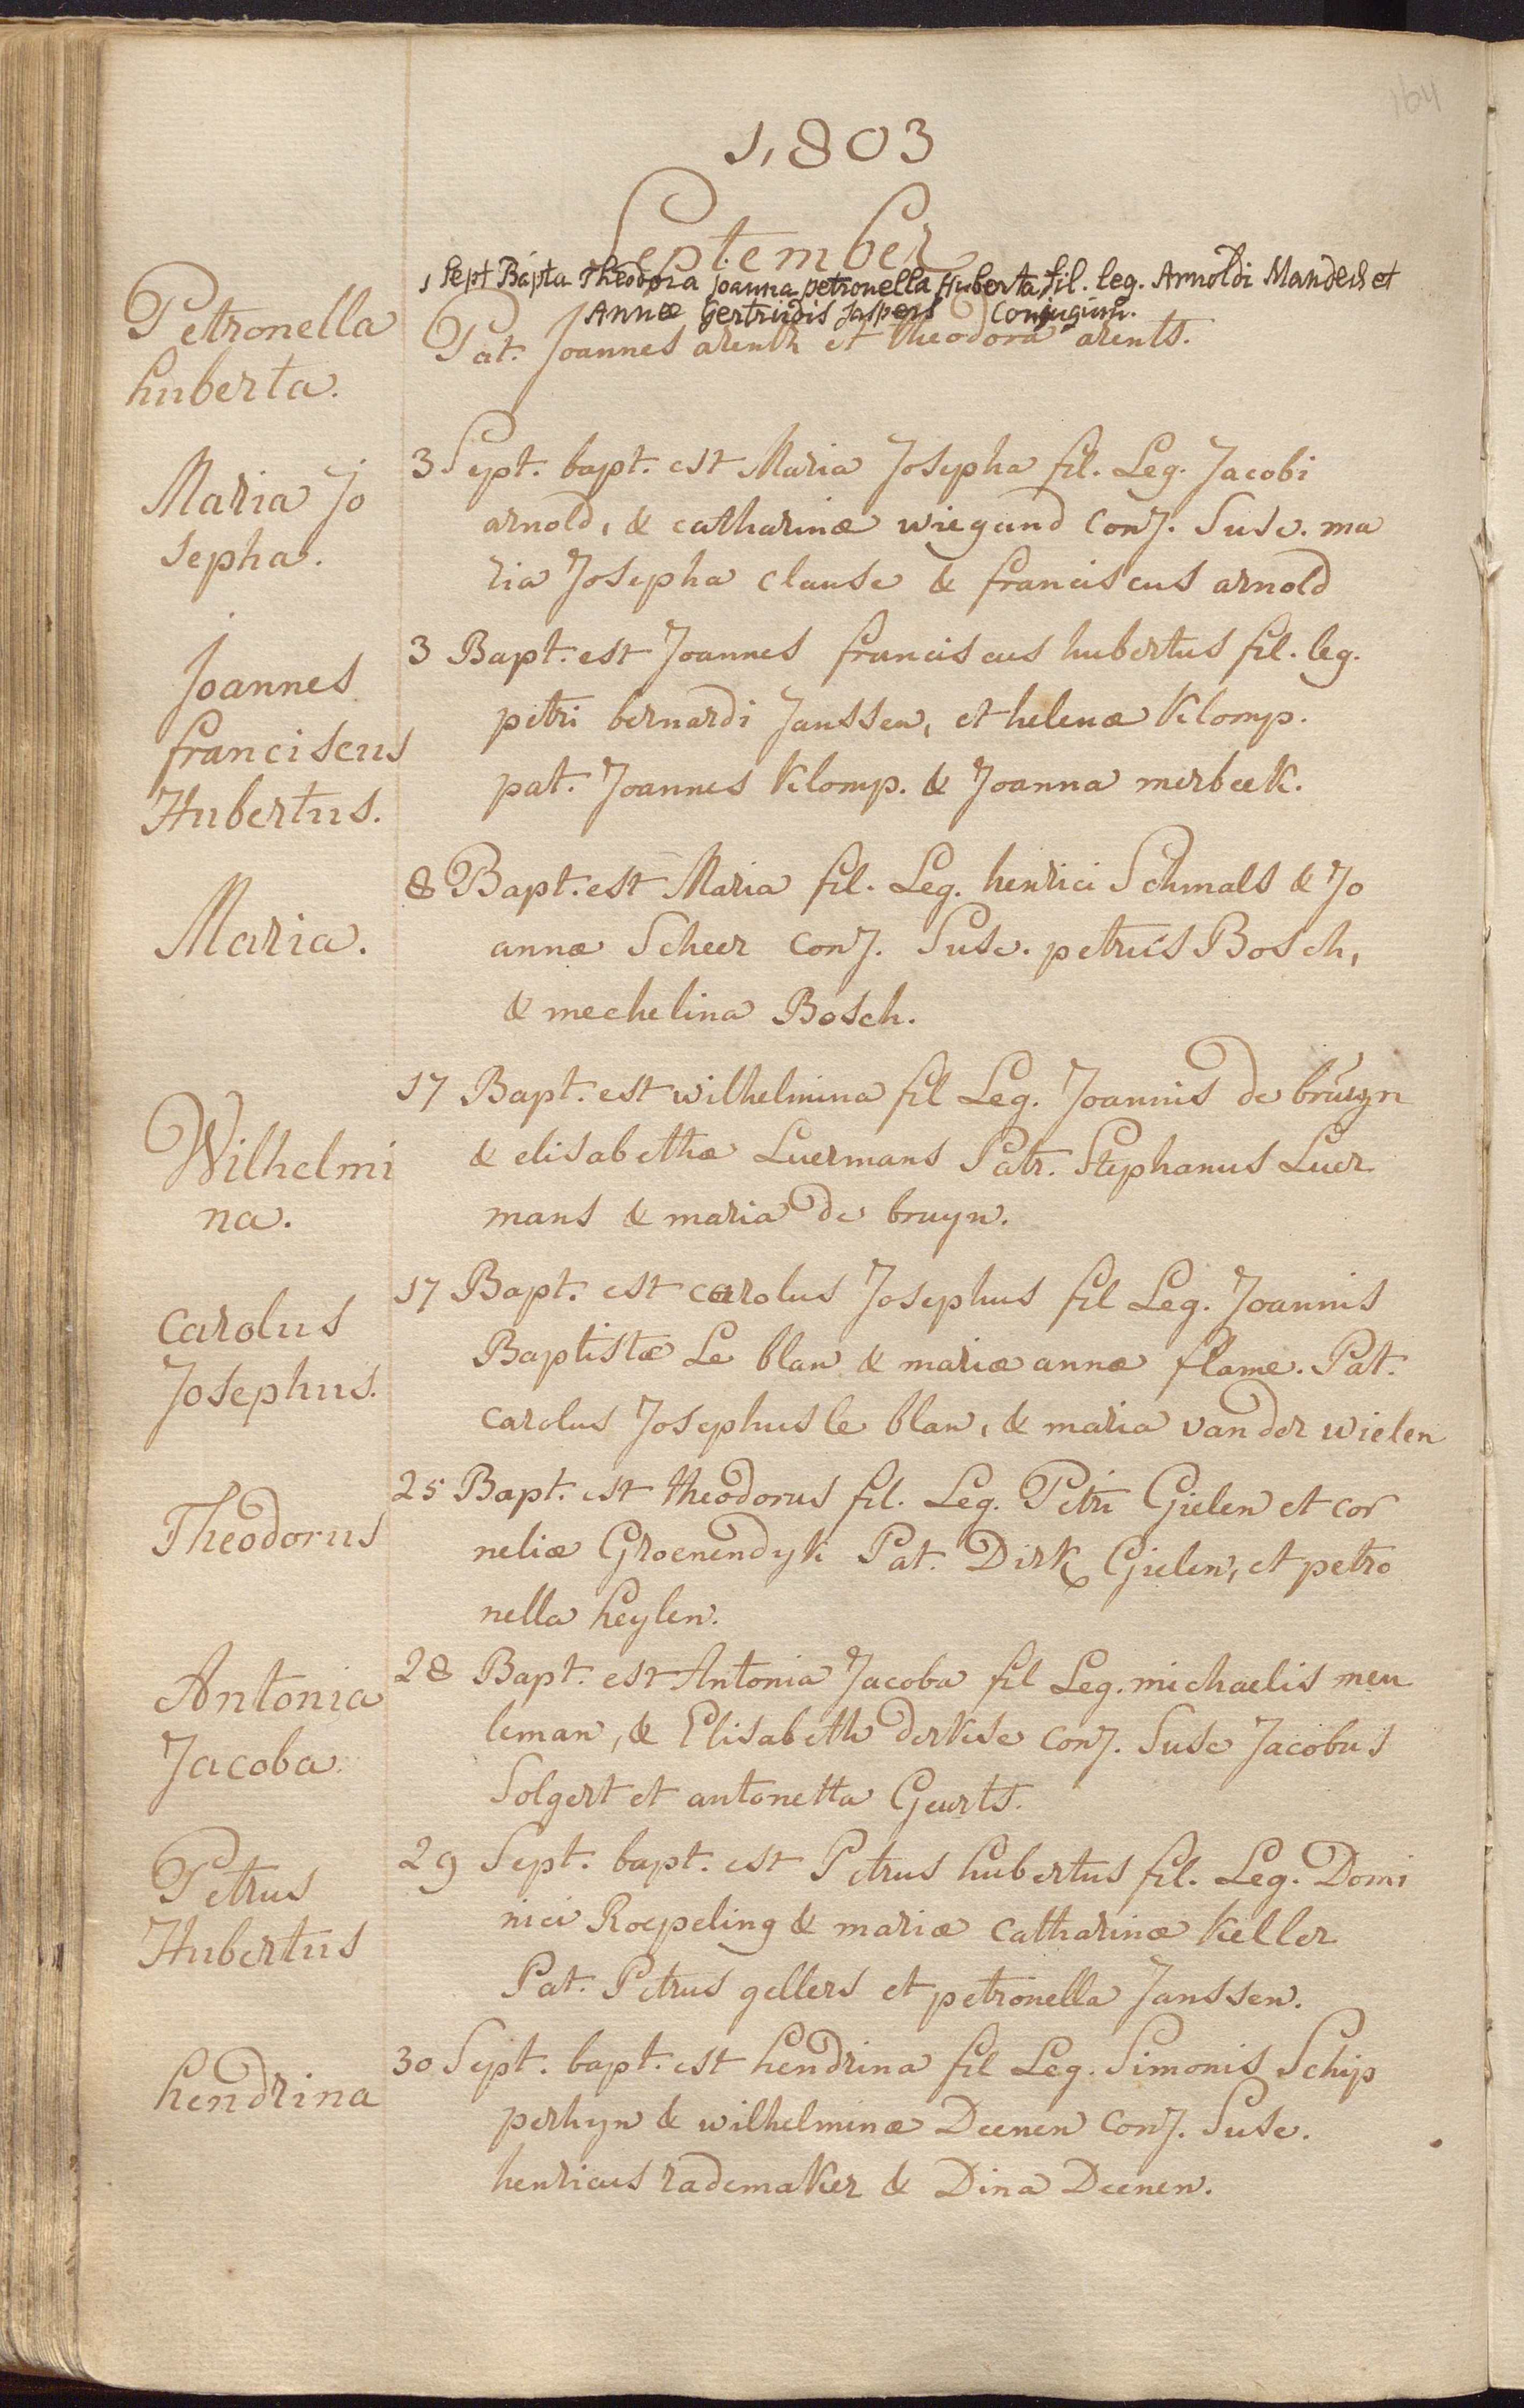 164
1,803
September
1 Sept Bapta Theodora joanna petronella Huberta fil. leg. Arnoldi Manders et
Annæ Gertrudis Jaspers Conjugum.
Petronella
huberta.
Pat. Joannes arents et theodora arents.
Maria Jo
sepha.
3 Sept. bapt. est Maria Josepha fil. Leg. Jacobi
arnold, & catharinæ wiegand conj. Susc. ma
ria Josepha clause & franciscus arnold
Joannes
franciscus
Hubertus.
3 Bapt. est Joannes franciscus hubertus fil. leg.
petri bernardi Janssen, et helenæ Klomp.
pat. Joannes Klomp. & Joanna merbeek.
Maria.
8 Bapt. est Maria fil. Leg. henrici Schmals & Jo
annæ Scheer conj. Susc. petrus Bosch,
& mechelina Bosch.
Wilhelmi
na.
17 Bapt. est wilhelmina fil Leg. Joannis de bruyn
& elisabethæ Luermans Patr. Stephanus Luer
mans & maria de bruyn.
carolus
Josephus.
17 Bapt. est carolus Josephus fil Leg. Joannis
Baptistæ Le blan & mariæ annæ flame. Pat.
carolus Josephus le blan, & maria van der wielen
Theodorus
25 Bapt. est theodorus fil. Leg. Petri Gielen et cor
neliæ Groenendyk Pat. Dirk Gielen, et petro
nella heylen.
Antonia
Jacoba
28 Bapt. est Antonia Jacoba fil Leg. michaelis meu
leman, & Elisabeth derkse conj. Susc Jacobus
Solgert et antonetta Geurts.
Petrus
Hubertus
29 Sept. bapt. est Petrus hubertus fil. Leg. Domi
nici Roepeling & mariæ catharinæ Keller
Pat. Petrus gellers et petronella Janssen.
hendrina
30 Sept. bapt. est hendrina fil Leg. Simonis Schip
perhyn & wilhelminæ Deenen conj. Susc.
henricus rademaker & Dina Deenen.